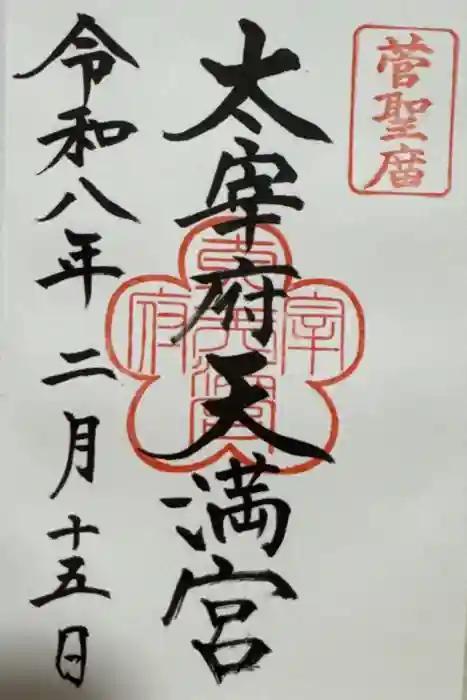 菅聖庿
太宰府天満宮
令和八年二月十五日